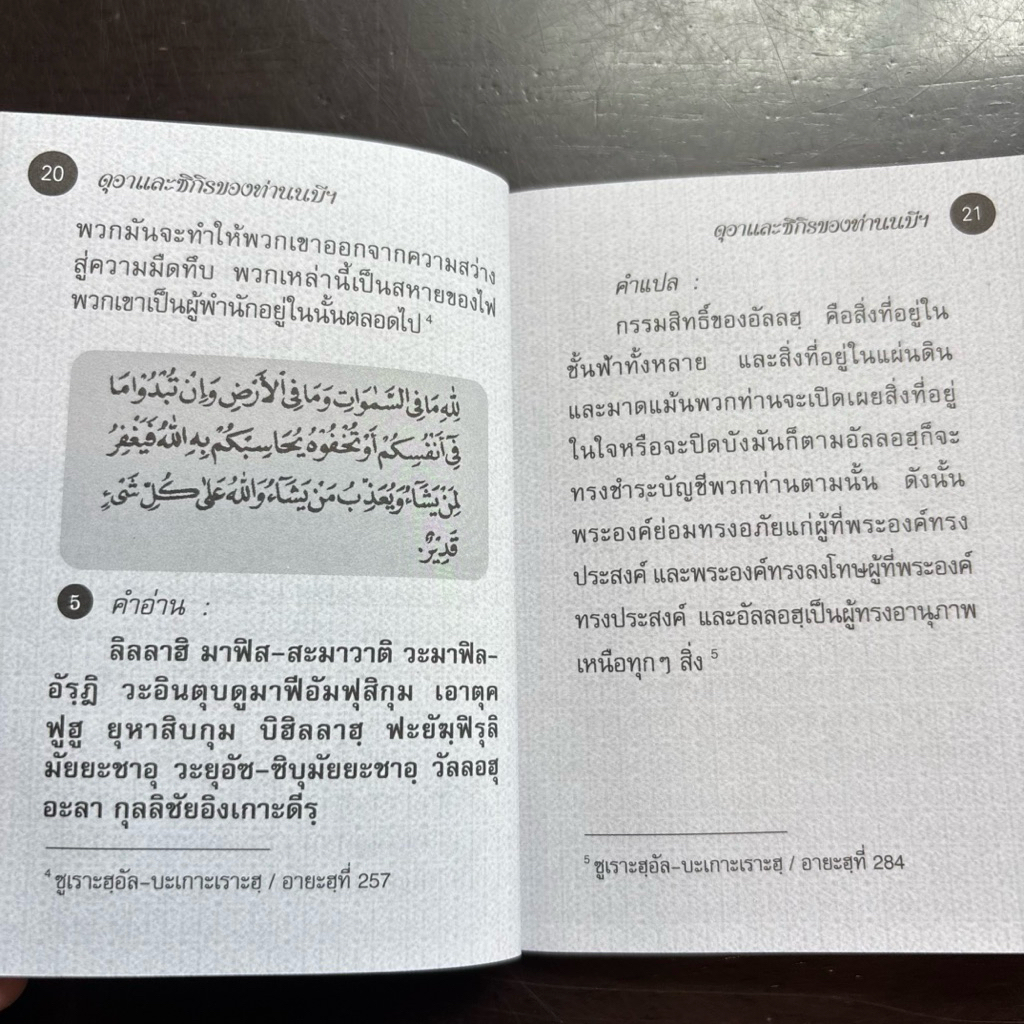 20
ดุอาและซิกิรของท่านนบีฯ
พวกมันจะทำให้พวกเขาออกจากความสว่าง
สู่ความมืดทึบ พวกเหล่านี้เป็นสหายของไฟ
พวกเขาเป็นผู้พำนักอยู่ในนั้นตลอดไป 4
لِلّٰهِ مَا فِي السَّمٰوَاتِ وَمَا فِي الْأَرْضِ وَإِنْ تُبْدُوْا مَا
فِيْ أَنْفُسِكُمْ أَوْ تُخْفُوْهُ يُحَاسِبْكُمْ بِهِ اللّٰهُ فَيَغْفِرُ
لِمَنْ يَشَآءُ وَيُعَذِّبُ مَنْ يَشَآءُ وَاللّٰهُ عَلٰى كُلِّ شَيْءٍ
قَدِيْرٌ.
5 คำอ่าน :
ลิลลาฮิ มาฟิส-สะมาวาติ วะมาฟิล-
อัรฺฎิ วะอินตุบดูมาฟีอัมฟุสิกุม เอาตุค
ฟูฮู ยุหาสิบกุม บิฮิลลาฮฺ ฟะยัฆฺฟิรุลิ
มัยยะชาอุ วะยุอัซ-ซิบุมัยยะชาอฺ วัลลอฮุ
อะลา กุลลิชัยอิงเกาะดีรฺ
4 ซูเราะฮฺอัล-บะเกาะเราะฮฺ / อายะฮฺที่ 257
ดุอาและซิกิรของท่านนบีฯ
21
คำแปล :
กรรมสิทธิ์ของอัลลอฮฺ คือสิ่งที่อยู่ใน
ชั้นฟ้าทั้งหลาย และสิ่งที่อยู่ในแผ่นดิน
และมาดแม้นพวกท่านจะเปิดเผยสิ่งที่อยู่
ในใจหรือจะปิดบังมันก็ตามอัลลอฮฺก็จะ
ทรงชำระบัญชีพวกท่านตามนั้น ดังนั้น
พระองค์ย่อมทรงอภัยแก่ผู้ที่พระองค์ทรง
ประสงค์ และพระองค์ทรงลงโทษผู้ที่พระองค์
ทรงประสงค์ และอัลลอฮฺเป็นผู้ทรงอานุภาพ
เหนือทุกๆ สิ่ง 5
5 ซูเราะฮฺอัล-บะเกาะเราะฮฺ / อายะฮฺที่ 284